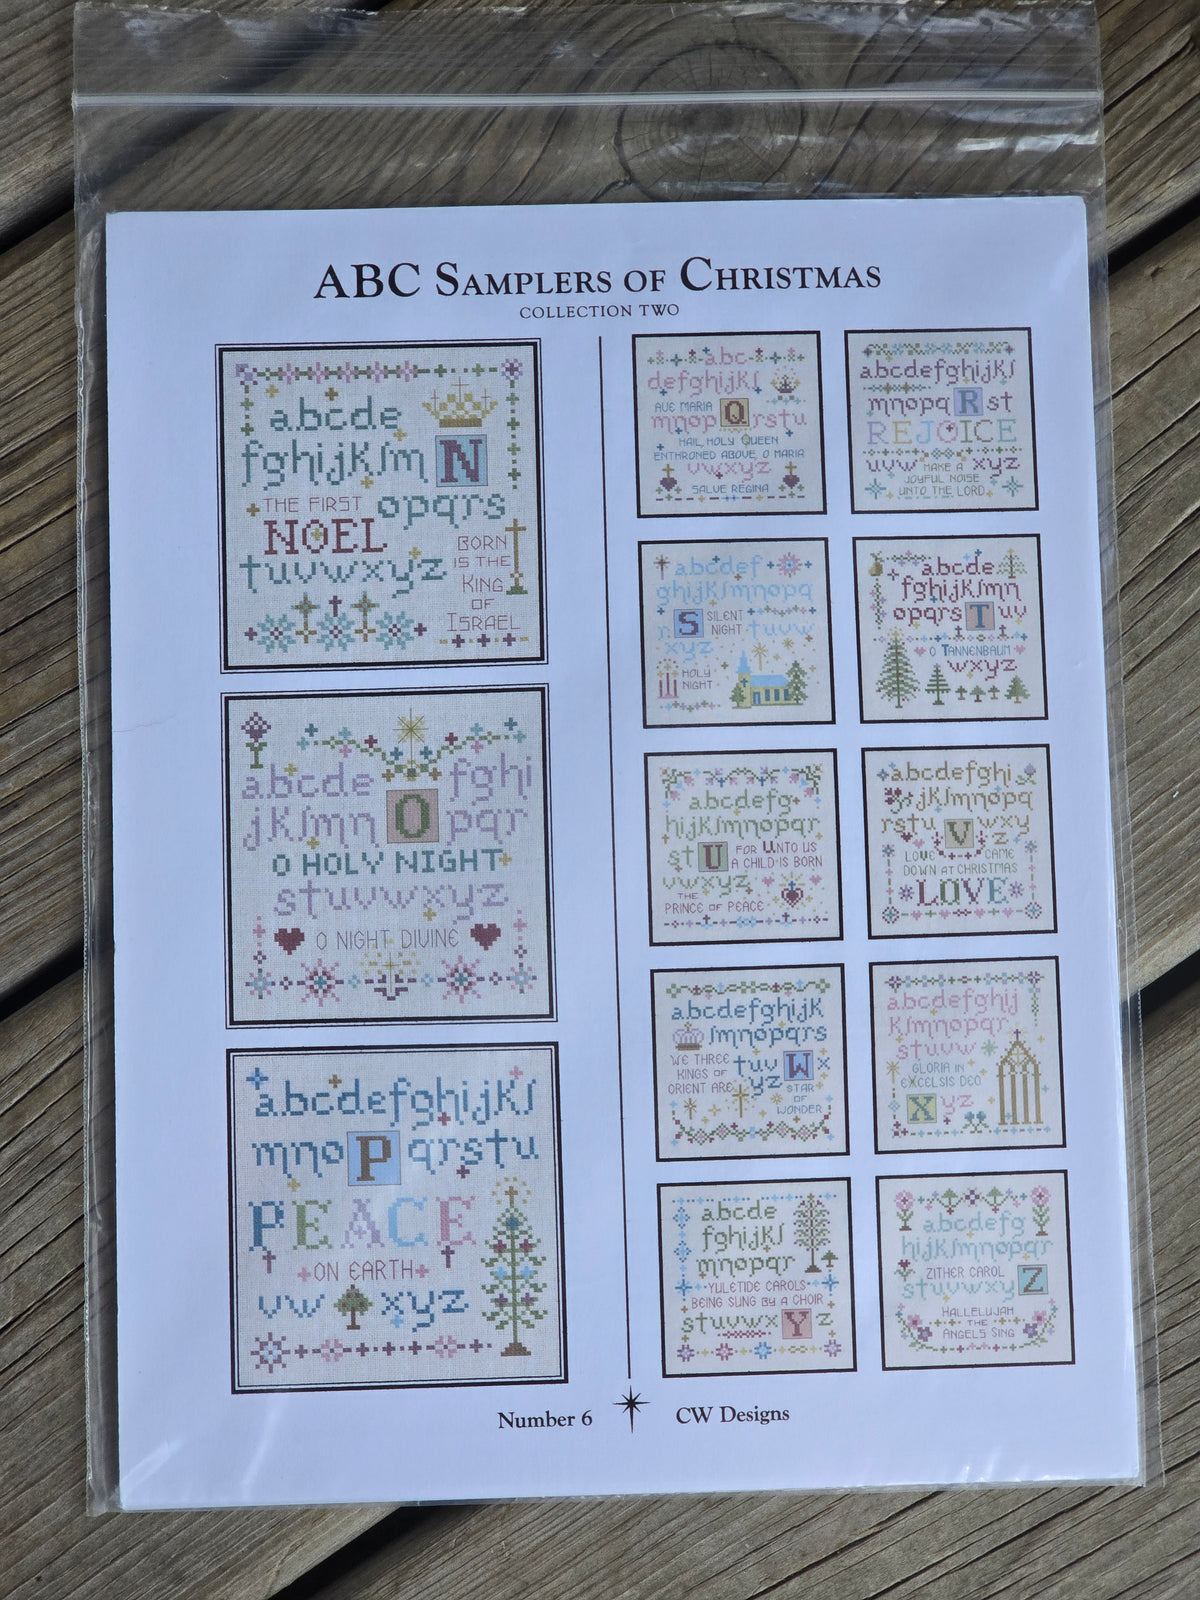 ABC SAMPLERS OF CHRISTMAS
COLLECTION TWO
abcde
fghijklm N
THE FIRST opqrs
NOEL
tuvwxyz
BORN
IS THE
KING
OF
ISRAEL
abcde fghi
jklmn O pqr
O HOLY NIGHT
stuvwxyz
O NIGHT DIVINE
abcdefghijkl
mno P qrstu
PEACE
ON EARTH
vw xyz
abc
defghijkl
AVE MARIA
mnop Q rstu
HAIL, HOLY QUEEN
ENTHRONED ABOVE, O MARIA
vwxyz
SALVE REGINA
abcdefghijkl
mnopq R st
REJOICE
uvw MAKE A xyz
JOYFUL NOISE
UNTO THE LORD
abcdef
ghijklmnopq
r S SILENT NIGHT tuvw
xyz
HOLY
NIGHT
abcde
fghijklmn
opqrs T uv
O TANNENBAUM
wxyz
abcdefg
hijklmnopqr
st U FOR UNTO US
A CHILD IS BORN
vwxyz
THE
PRINCE OF PEACE
abcdefghi
jklmnopq
rstu V wxyz
LOVE CAME
DOWN AT CHRISTMAS
LOVE
abcdefghijk
lmnopqrs
WE THREE
KINGS OF
ORIENT ARE
tuv W x
yz
STAR
OF
WONDER
abcdefghij
klmnopqr
stuvw
GLORIA IN
EXCELSIS DEO
X yz
abcde
fghijkl
mnopqr
YULETIDE CAROLS
BEING SUNG BY A CHOIR
stuvwx Y z
abcdefg
hijklmnopqr
ZITHER CAROL
stuvwxy Z
HALLELUJAH
THE
ANGELS SING
Number 6 CW Designs